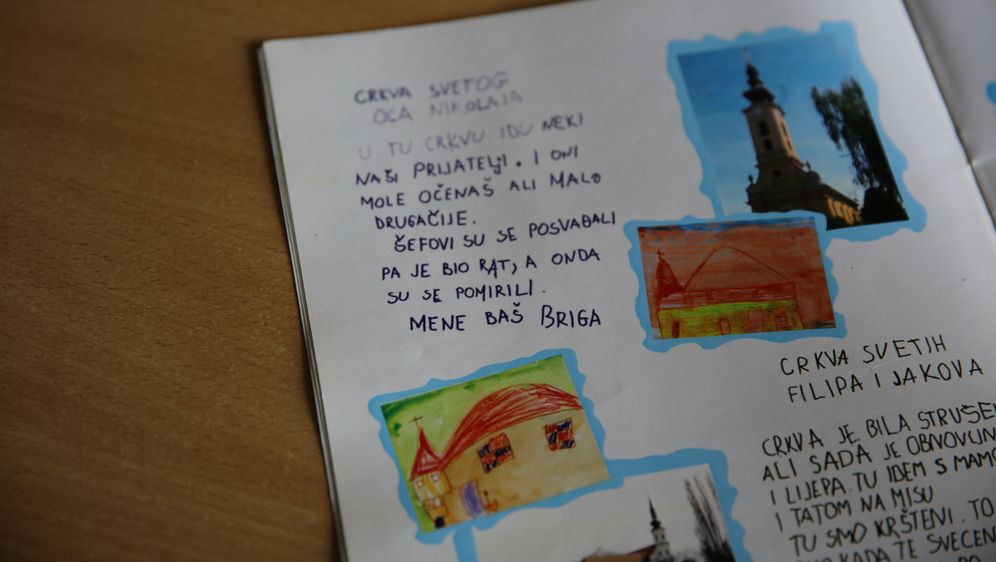 CRKVA SVETOG
OCA NIKOLAJA
U TU CRKVU IDU NEKI
NAŠI PRIJATELJI. I ONI
MOLE OČENAŠ ALI MALO
DRUGAČIJE.
ŠEFOVI SU SE POSVAĐALI
PA JE BIO RAT, A ONDA
SU SE POMIRILI.
MENE BAŠ BRIGA
CRKVA SVETIH
FILIPA I JAKOVA
CRKVA JE BILA STRUŠEN
ALI SADA JE OBNOVLJN
I LIJEPA. TU IDEM S MAMO
I TATOM NA MISU
TU SMO KRŠTENI. TO
KADA TE SVEĆEN